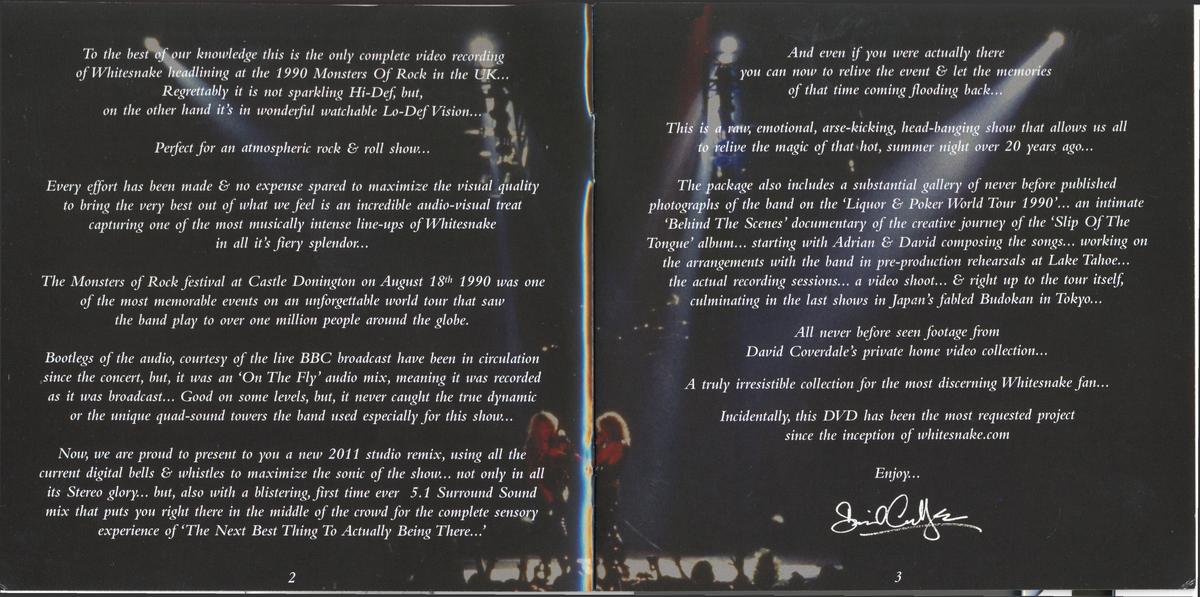 To the best of our knowledge this is the only complete video recording
of Whitesnake headlining at the 1990 Monsters Of Rock in the UK...
Regrettably it is not sparkling Hi-Def, but,
on the other hand it's in wonderful watchable Lo-Def Vision...
Perfect for an atmospheric rock & roll show...
Every effort has been made & no expense spared to maximize the visual quality
to bring the very best out of what we feel is an incredible audio-visual treat
capturing one of the most musically intense line-ups of Whitesnake
in all it's fiery splendor...
The Monsters of Rock festival at Castle Donington on August 18th 1990 was one
of the most memorable events on an unforgettable world tour that saw
the band play to over one million people around the globe.
Bootlegs of the audio, courtesy of the live BBC broadcast have been in circulation
since the concert, but, it was an 'On The Fly' audio mix, meaning it was recorded
as it was broadcast... Good on some levels, but, it never caught the true dynamic
or the unique quad-sound towers the band used especially for this show...
Now, we are proud to present to you a new 2011 studio remix, using all the
current digital bells & whistles to maximize the sonic of the show... not only in all
its Stereo glory... but, also with a blistering, first time ever 5.1 Surround Sound
mix that puts you right there in the middle of the crowd for the complete sensory
experience of 'The Next Best Thing To Actually Being There...'
2
And even if you were actually there
you can now to relive the event & let the memories
of that time coming flooding back...
This is a raw, emotional, arse-kicking, head-banging show that allows us all
to relive the magic of that hot, summer night over 20 years ago...
The package also includes a substantial gallery of never before published
photographs of the band on the 'Liquor & Poker World Tour 1990'... an intimate
'Behind The Scenes' documentary of the creative journey of the 'Slip Of The
Tongue' album... starting with Adrian & David composing the songs... working on
the arrangements with the band in pre-production rehearsals at Lake Tahoe...
the actual recording sessions... a video shoot... & right up to the tour itself,
culminating in the last shows in Japan's fabled Budokan in Tokyo...
All never before seen footage from
David Coverdale's private home video collection...
A truly irresistible collection for the most discerning Whitesnake fan...
Incidentally, this DVD has been the most requested project
since the inception of whitesnake.com
Enjoy...
3